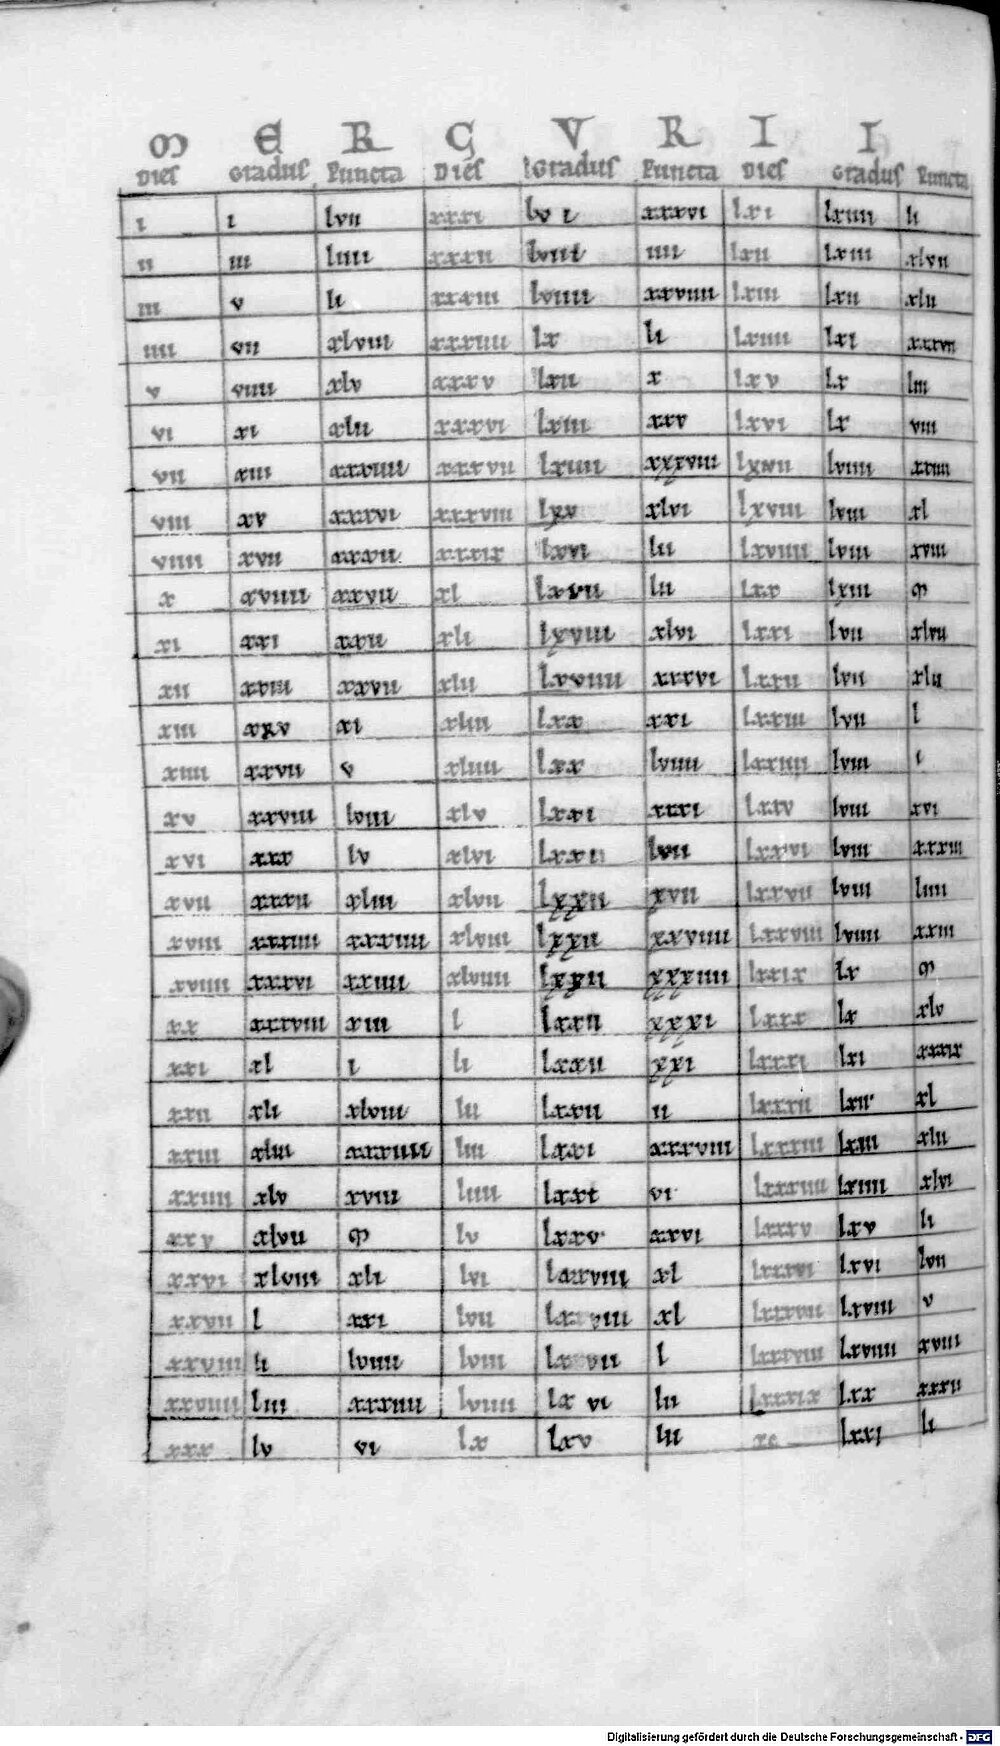 M E R C V R I I
Dies Gradus Puncta Dies Gradus Puncta Dies Gradus Puncta
i i lvii xxxi lvi xxxvi lxi lxiiii li
ii iii liiii xxxii lviii iiii lxii lxiii xlvii
iii v li xxxiii lviiii xxviiii lxiii lxii xlii
iiii vii xlviii xxxiiii lx li lxiiii lxi xxxvii
v viiii xlv xxxv lxii x lxv lx liii
vi xi xlii xxxvi lxiii xxv lxvi lx viii
vii xiii xxxviiii xxxvii lxiiii xxxviii lxvii lviiii xxiiii
viii xv xxxvi xxxviii lxv xlvi lxviii lviii xl
viiii xvii xxxii xxxix lxvi lii lxviiii lviii xviii
x xviiii xxvii xl lxvii lii lxx lxiii ɱ
xi xxi xxii xli lxviii xlvi lxxi lvii xlvii
xii xxiii xxvii xlii lxviiii xxxvi lxxii lvii xlii
xiii xxv xi xliii lxx xxi lxxiii lvii l
xiiii xxvii v xliiii lxx lviiii lxxiiii lviii i
xv xxviii lviii xlv lxxi xxxi lxxv lviii xvi
xvi xxx lv xlvi lxxii lvii lxxvi lviii xxxiii
xvii xxxii xliii xlvii lxxii xvii lxxvii lviii liiii
xviii xxxiiii xxxiiii xlviii lxxii xxviiii lxxviii lviiii xxiii
xviiii xxxvi xxiiii xlviiii lxxii xxxiiii lxxix lx ɱ
xx xxxviii xiii l lxxii xxxi lxxx lx xlv
xxi xl i li lxxii xxi lxxxi lxi xxxix
xxii xli xlviii lii lxxii ii lxxxii lxii xl
xxiii xliii xxxiiii liii lxxi xxxviii lxxxiii lxiii xlii
xxiiii xlv xviii liiii lxxi vi lxxxiiii lxiiii xlvi
xxv xlvii ɱ lv lxxv xxvi lxxxv lxv li
xxvi xlviii xli lvi lxxviii xl lxxxvi lxvi lvii
xxvii l xxi lvii lxxviii xl lxxxvii lxviii v
xxviii li lviiii lviii lxvii l lxxxviii lxviiii xviii
xxviiii liii xxxiiii lviiii lxvi lii lxxxix lxx xxxii
xxx lv vi lx lxv lii xc lxxi li
Digitalisierung gefördert durch die Deutsche Forschungsgemeinschaft - DFG